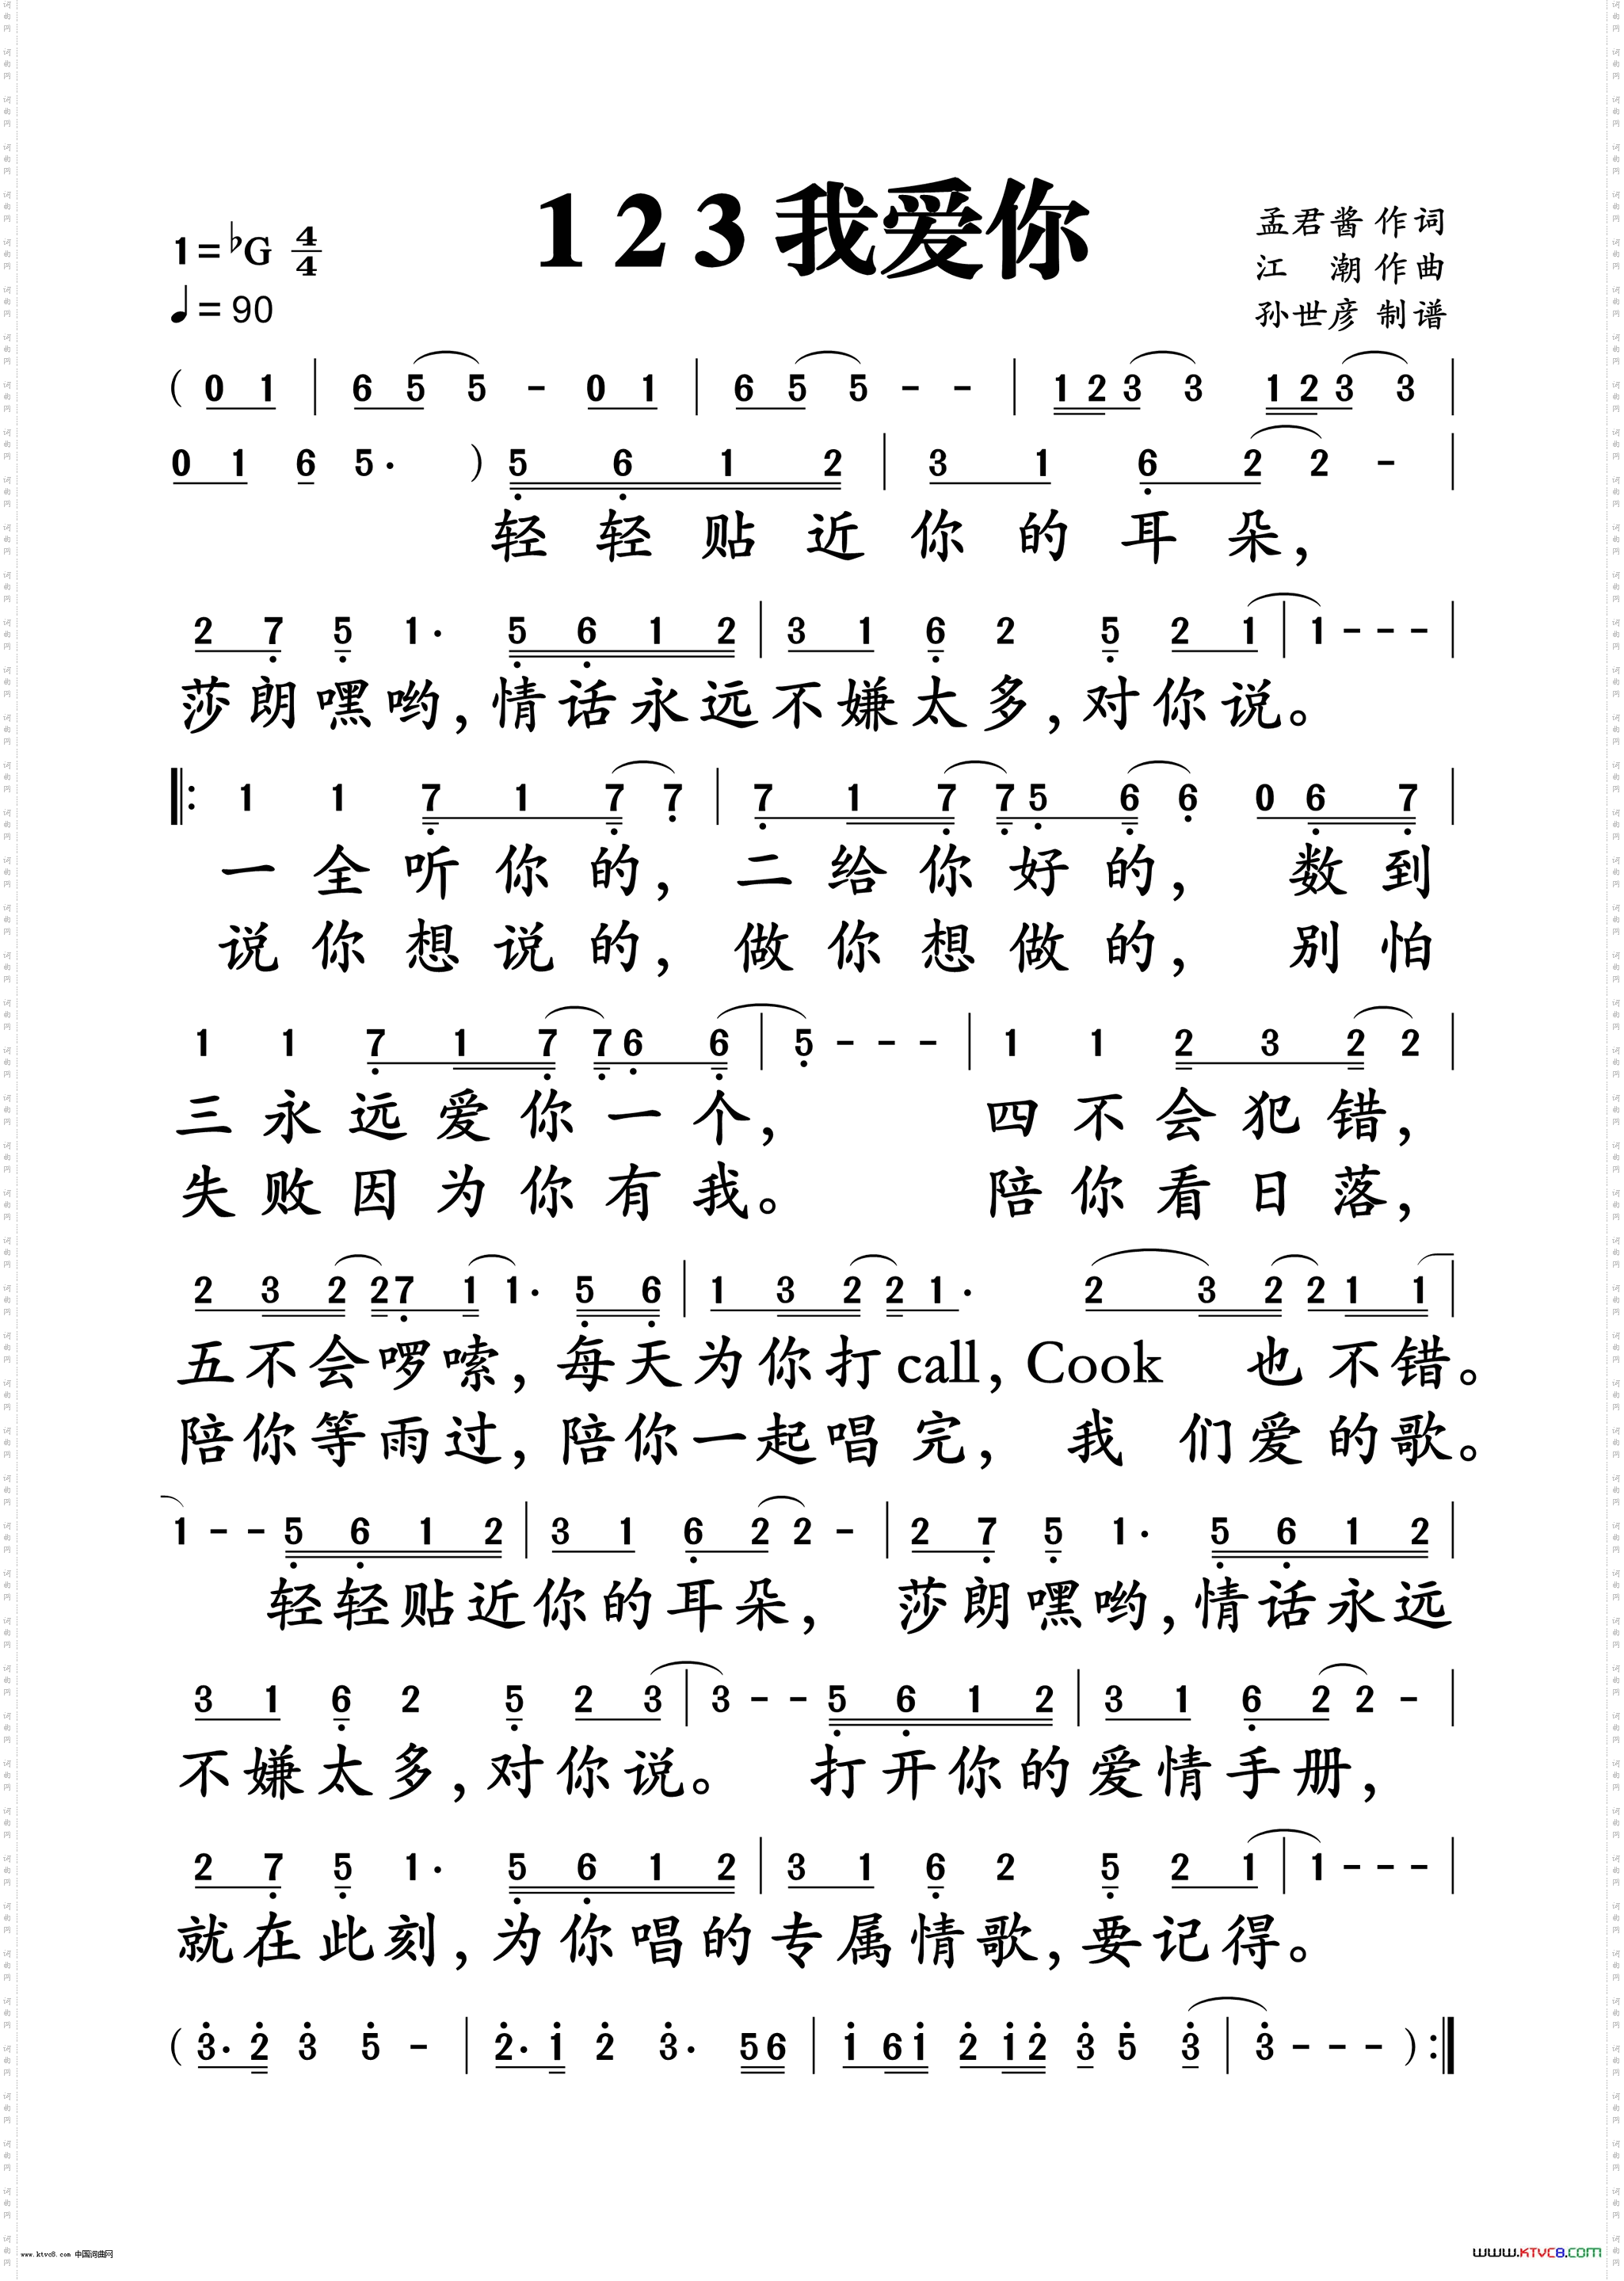 1 2 3 我爱你
1=♭G 4/4
♩=90
孟君酱 作词
江 潮 作曲
孙世彦 制谱
( 0 1 | 6 5 5 - 0 1 | 6 5 5 - - | 1 2 3 3 1 2 3 3 |
0 1 6 5· ) 5 6 1 2 | 3 1 6 2 2 - |
轻轻贴近你的耳朵,
2 7 5 1· 5 6 1 2 | 3 1 6 2 5 2 1 | 1 - - - |
莎朗嘿哟,情话永远不嫌太多,对你说。
‖: 1 1 7 1 7 7 | 7 1 7 7 5 6 6 0 6 7 |
一全听你的,二给你好的, 数到
说你想说的,做你想做的, 别怕
1 1 7 1 7 7 6 6 | 5 - - - | 1 1 2 3 2 2 |
三永远爱你一个, 四不会犯错,
失败因为你有我。 陪你看日落,
2 3 2 2 7 1 1· 5 6 | 1 3 2 2 1· 2 3 2 2 1 1 |
五不会啰嗦,每天为你打call,Cook 也不错。
陪你等雨过,陪你一起唱完, 我们爱的歌。
1 - - 5 6 1 2 | 3 1 6 2 2 - | 2 7 5 1· 5 6 1 2 |
轻轻贴近你的耳朵, 莎朗嘿哟,情话永远
3 1 6 2 5 2 3 | 3 - - 5 6 1 2 | 3 1 6 2 2 - |
不嫌太多,对你说。 打开你的爱情手册,
2 7 5 1· 5 6 1 2 | 3 1 6 2 5 2 1 | 1 - - - |
就在此刻,为你唱的专属情歌,要记得。
( 3· 2 3 5 - | 2· 1 2 3· 5 6 | 1 6 1 2 1 2 3 5 3 | 3 - - - ) :‖
www.ktvc8.com 中国词曲网
WWW.KTVC8.COM